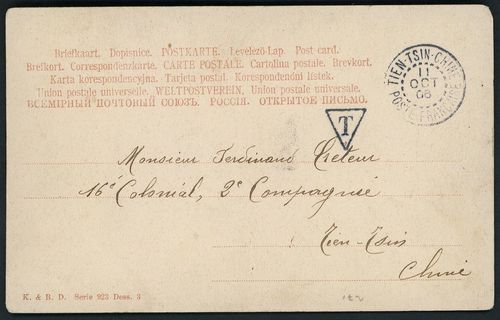 Briefkaart. Dopisnice. POSTKARTE. Levelező-Lap. Post card.
Brefkort. Correspondenzkarte. CARTE POSTALE. Cartolina postale. Brevkort.
Karta korespondencyjna. Tarjeta postal. Korespondenčni listek.
Union postale universelle. WELTPOSTVEREIN. Union postale universelle.
ВСЕМІРНЫЙ ПОЧТОВЫЙ СОЮЗЪ. РОССІЯ. ОТКРЫТОЕ ПИСЬМО.
TIEN-TSIN-CHINE
11
OCT
06
POSTE FRANÇAISE
T
Monsieur Ferdinand Creteur
16e Colonial, 2e Compagnie
Tien-Tsin
Chine
K. & B. D. Serie 923 Dess. 3